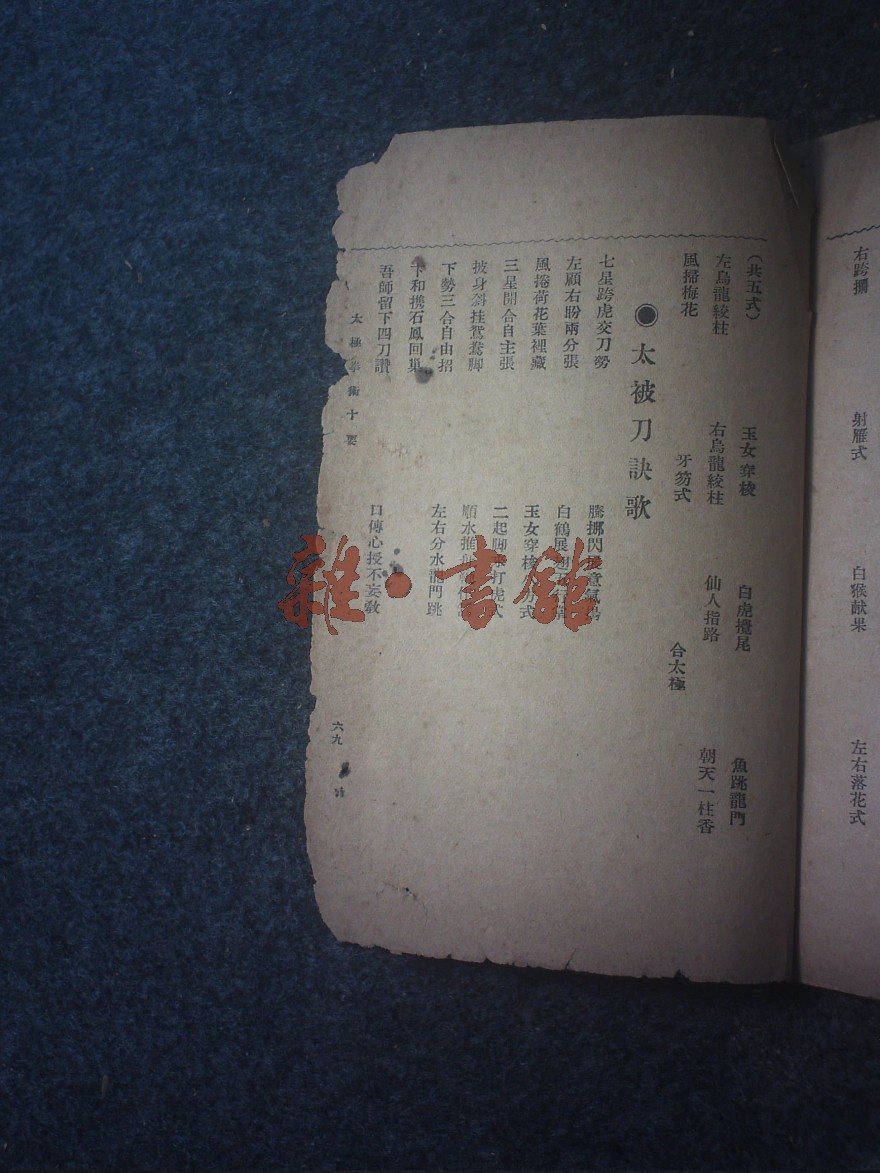 右跨 射雁式 白猴献果 左右落花式
（共五式） 玉女穿梭 白虎攪尾 魚跳龍門
左烏龍絞柱 右烏龍絞柱 仙人指路 朝天一柱香
風掃梅花 牙笏式 合太極
◉太被刀訣歌
七星跨虎交刀勢 騰挪閃 意氣揚
左顧右盼兩分張 白鶴展翅
風捲荷花葉裡藏 玉女穿梭 方式
三星開合自主張 二起脚 打虎式
披身斜挂鴛鴦脚 順水推
下勢三合自由招 左右分水龍門跳
卞和携石鳳回巢
吾師留下四刀讚 口傳心授不妄教
太極拳術十要
六九
雜·書館